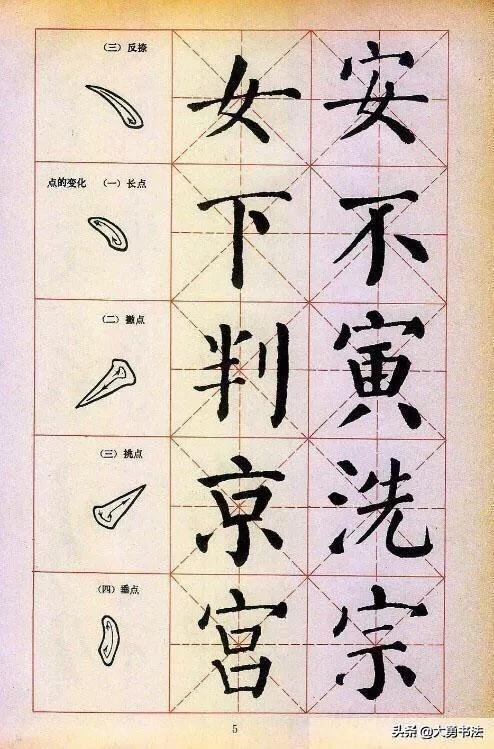 (三)反捺
女 安
点的变化 (一)长点
下 不
(二)撇点
判 寅
(三)挑点
京 洗
(四)垂点
宫 宗
5
头条 @大勇书法